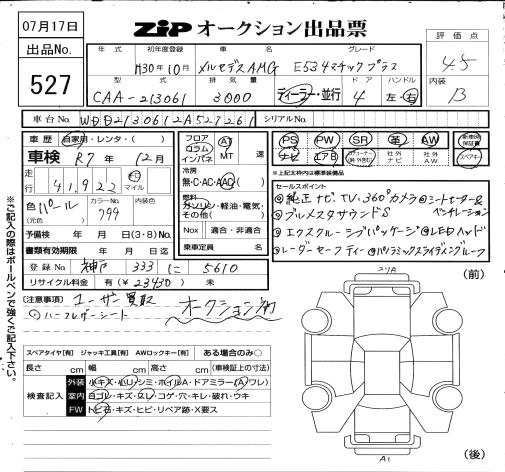 07月17日
ZiP オークション出品票
出品No.
527
年式 初年度登録 車名 グレード
H30年10月 メルセデスAMG E53 4マチックプラス
型式 排気量 ドア ハンドル
CAA-213061 3000 ディーラー・並行 4 左・右
評価点
4.5
内装
B
車台No. WDD2130612A527261 シリアルNo.
車歴 自家用・レンタ・( )
車検 R7年 12月
走行 41,922 km マイル
色(元色) パール カラーNo. 799 内装色
予備検 年 月 日(3・8)No.
書類有効期限 年 月 日迄
登録No. 神戸 333 に 5610
リサイクル料金 有(¥23430) 未
フロア コラム インパネ AT MT 速
冷房 無・C・AC・AAC
燃料 ガソリン・軽油・電気・その他( )
Nox 適合・非適合
乗車定員 名
PS PW SR 革 AW 新車時保証書
ナビ エアB 社外ナビ 社外AW スペアキー
※上記太枠内は標準装備品
セールスポイント
◎純正ナビ、TV、360°カメラ ◎シートヒーター&ベンチレーション
◎ブルメスタサウンドS
◎エクスクルーシブパッケージ ◎LEDヘッド
◎レーダーセーフティー ◎パノラミックスライディングルーフ
※ご記入の際はボールペンで強くご記入下さい。
(注意事項) ユーザー買取 オークション初
◎ハーフレザーシート
スペアタイヤ[有] ジャッキ工具[有] AWロックキー[有] ある場合のみ○
長さ cm 幅 cm 高さ cm (車検証上の寸法)
検査記入
外装 小キズ・小凹・シミ・ホイルA・ドアミラー(A・ワレ)
室内 ヨゴレ・キズ・スレ・コゲ・穴・キレ・破れ・ウキ
FW トビ石・キズ・ヒビ・リペア跡・X要ス
(前)
(後)
A1